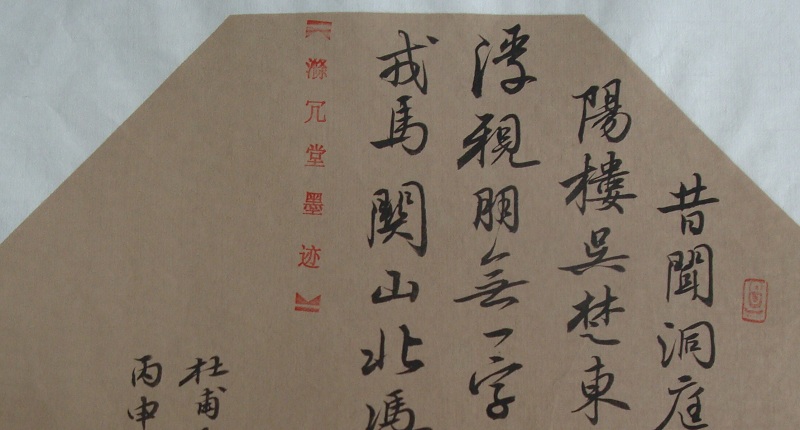 昔聞洞庭
陽樓吳楚東
浮親朋無一字
戎馬關山北馮
【滌冗堂墨迹】
杜甫
丙申